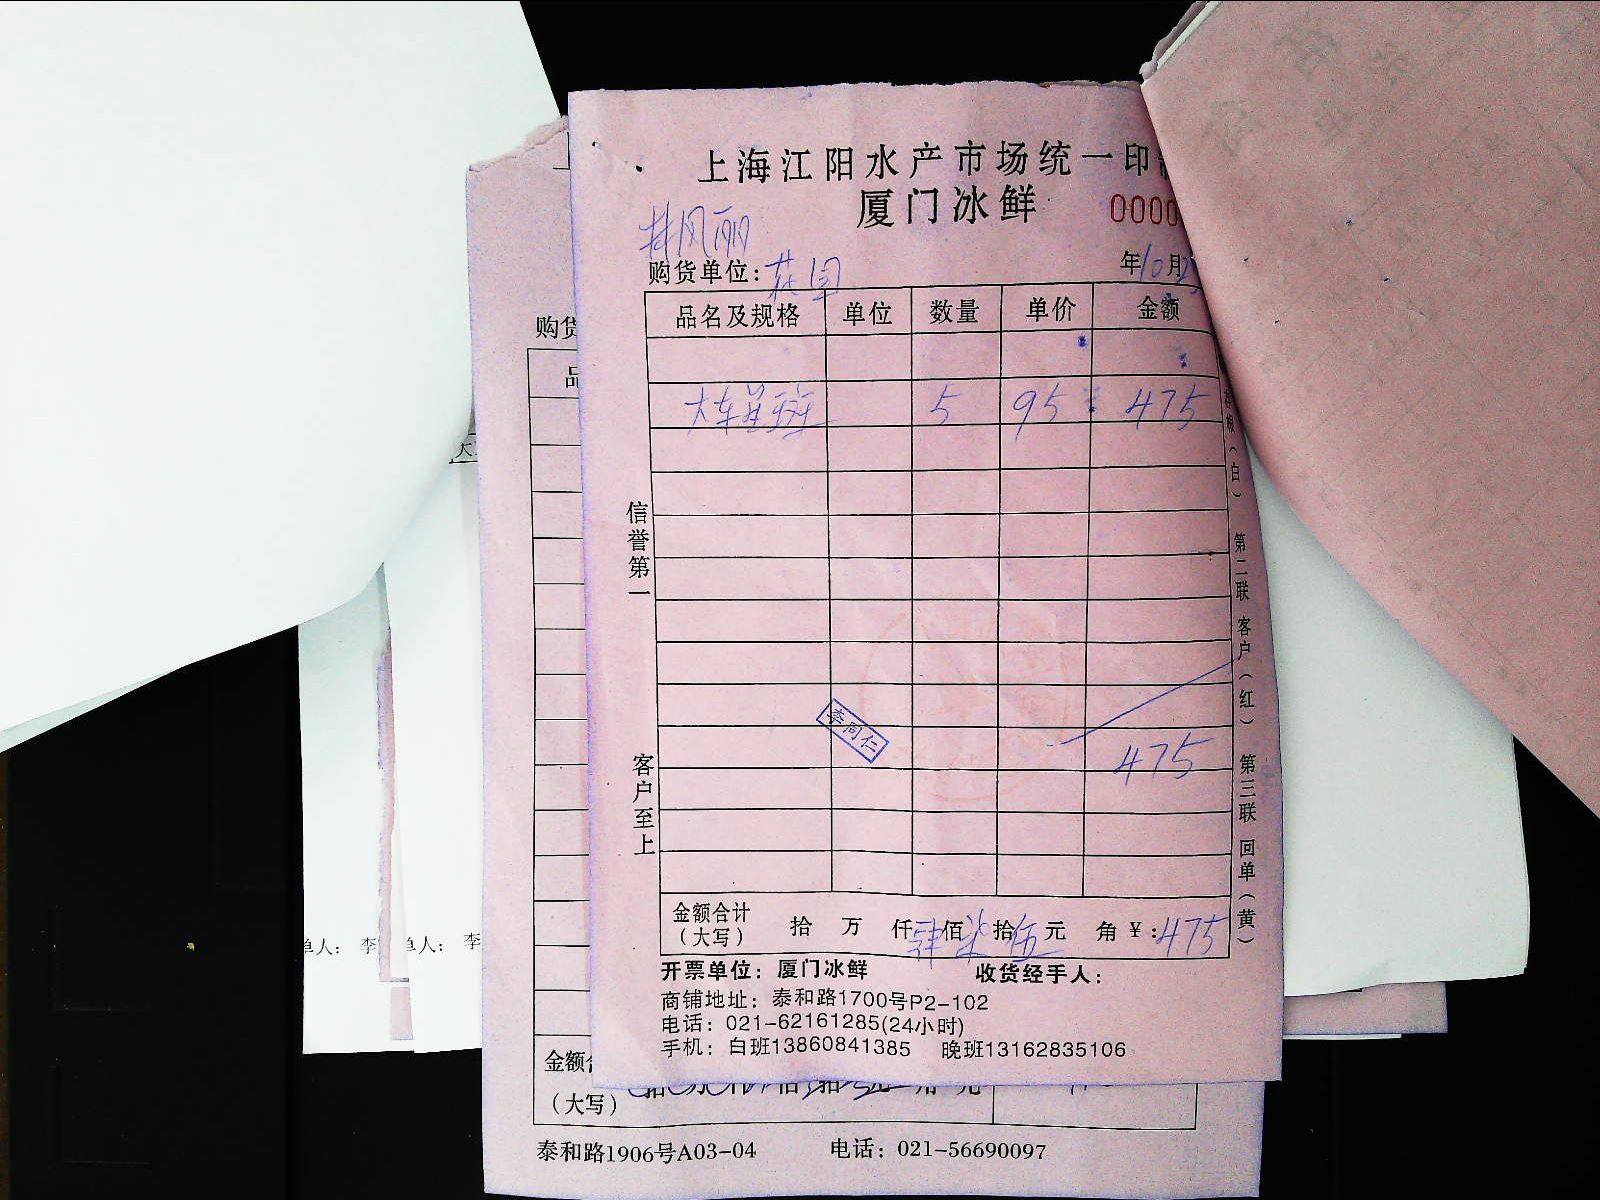 上海江阳水产市场统一印
厦门冰鲜
0000
林凤丽
购货单位：花园
年10月2
品名及规格 单位 数量 单价 金额
5 95 475
信誉第一
客户至上
李同仁
475
（白） 第二联 客户（红） 第三联 回单（黄）
金额合计（大写） 拾 万 仟肆佰柒拾伍元 角 ￥：475
开票单位：厦门冰鲜 收货经手人：
商铺地址：泰和路1700号P2-102
电话：021-62161285(24小时)
手机：白班13860841385 晚班13162835106
购货
品
单人：李
单人：李
金额
（大写）
泰和路1906号A03-04 电话：021-56690097